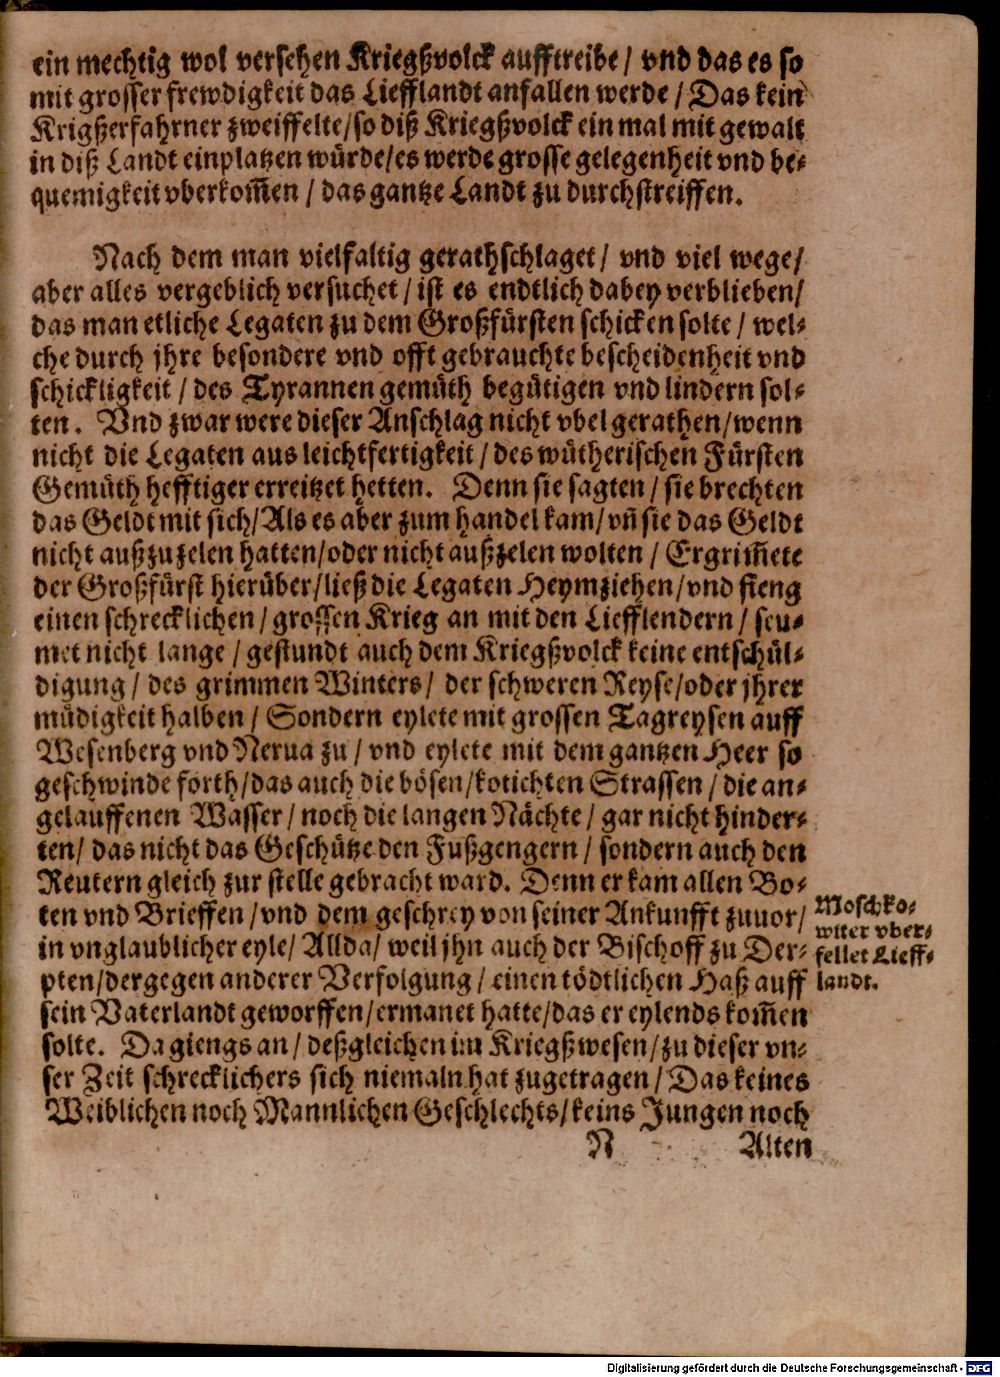 ein mechtig wol versehen Kriegßvolck aufftreibe / vnd das es so
mit grosser frewdigkeit das Liefflandt anfallen werde / Das kein
Krigßerfahrner zweiffelte/so diß Kriegßvolck ein mal mit gewalt
in diß Landt einplatzen würde/es werde grosse gelegenheit vnd be-
quemigkeit vberkom̃en / das gantze Landt zu durchstreiffen.
Nach dem man vielfaltig gerathschlaget / vnd viel wege/
aber alles vergeblich versuchet / ist es endtlich dabey verblieben/
das man etliche Legaten zu dem Großfürsten schicken solte / wel-
che durch jhre besondere vnd offt gebrauchte bescheidenheit vnd
schickligkeit / des Tyrannen gemüth begütigen vnd lindern sol-
ten. Vnd zwar were dieser Anschlag nicht vbel gerathen/wenn
nicht die Legaten aus leichtfertigkeit / des wütherischen Fürsten
Gemüth hefftiger erreitzet hetten. Denn sie sagten / sie brechten
das Geldt mit sich/Als es aber zum handel kam/vñ sie das Geldt
nicht auß zu zelen hatten/oder nicht außzelen wolten / Ergrim̃ete
der Großfürst hierüber/ließ die Legaten Heymziehen/vnd fieng
einen schrecklichen / grossen Krieg an mit den Liefflendern / seu-
met nicht lange / gestundt auch dem Kriegßvolck keine entschül-
digung / des grimmen Winters / der schweren Reyse/oder jhrer
müdigkeit halben / Sondern eylete mit grossen Tagreysen auff
Wesenberg vnd Nerua zu / vnd eylete mit dem gantzen Heer so
geschwinde forth/das auch die bösen/kotichten Strassen / die an-
gelauffenen Wasser / noch die langen Nächte / gar nicht hinder-
ten/ das nicht das Geschütze den Fußgengern / sondern auch den
Reutern gleich zur stelle gebracht ward. Denn er kam allen Bo-
ten vnd Brieffen /vnd dem geschrey von seiner Ankunfft zuuor/
in vnglaublicher eyle/ Allda/ weil jhn auch der Bischoff zu Der-
pten/der gegen anderer Verfolgung / einen tödtlichen Haß auff
sein Vaterlandt geworffen/ermanet hatte/das er eylends kom̃en
solte. Da giengs an / deßgleichen im Kriegßwesen/zu dieser vn-
ser Zeit schrecklichers sich niemaln hat zugetragen / Das keines
Weiblichen noch Mannlichen Geschlechts/keins Jungen noch
N Alten
Moschko-
witer vber-
fellet Lieff-
landt.
Digitalisierung gefördert durch die Deutsche Forschungsgemeinschaft - DFG